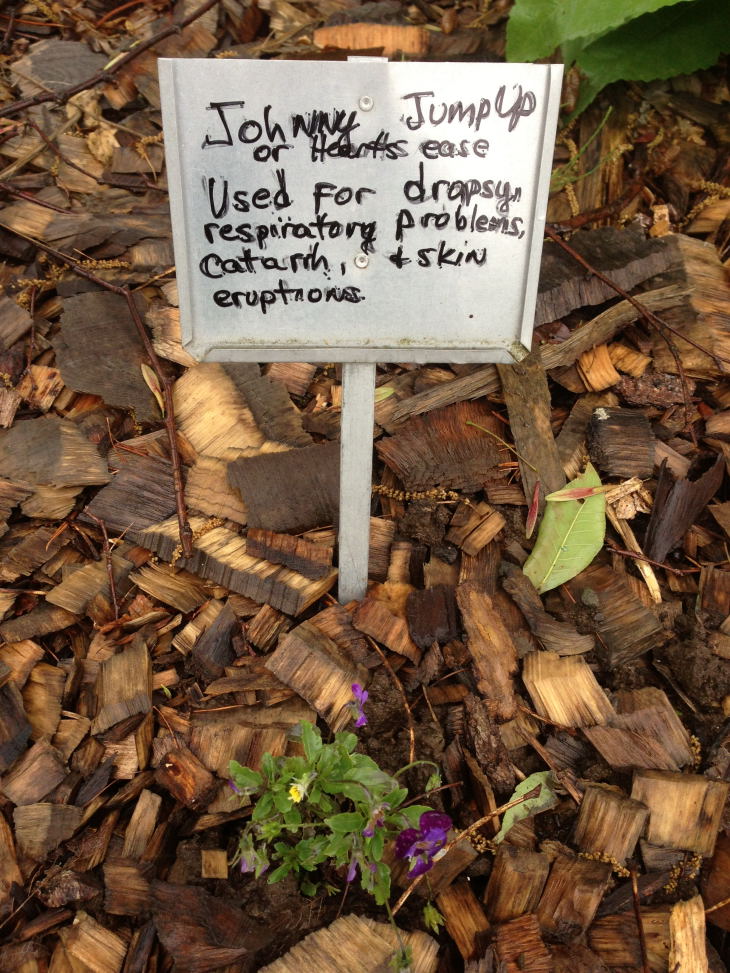 Johnny Jump Up
or Hearts ease
Used for dropsy,
respiratory problems,
Catarrh, + skin
eruptions.